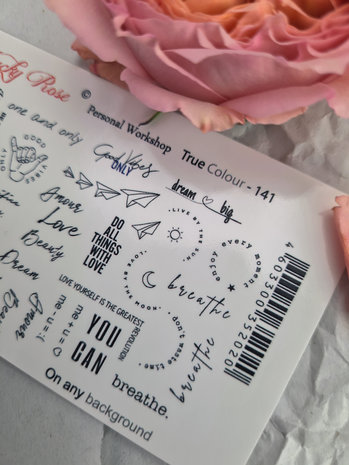 ky Rose
©
Personal Workshop
True Colour - 141
one and only
GOOD
VIBES
Good Vibes
ONLY
dream big
Amour
Love
Beauty
Dream
DO
ALL
THINGS
WITH
LOVE
• LIVE BY THE SUN • LOVE BY THE MOON
enjoy every moment
don't waste time
breathe
LOVE YOURSELF IS THE GREATEST
REVOLUTION
me + u = ∞
me - u = :(
Amour
YOU
CAN
breathe.
breathe
On any background
4 603300 352020